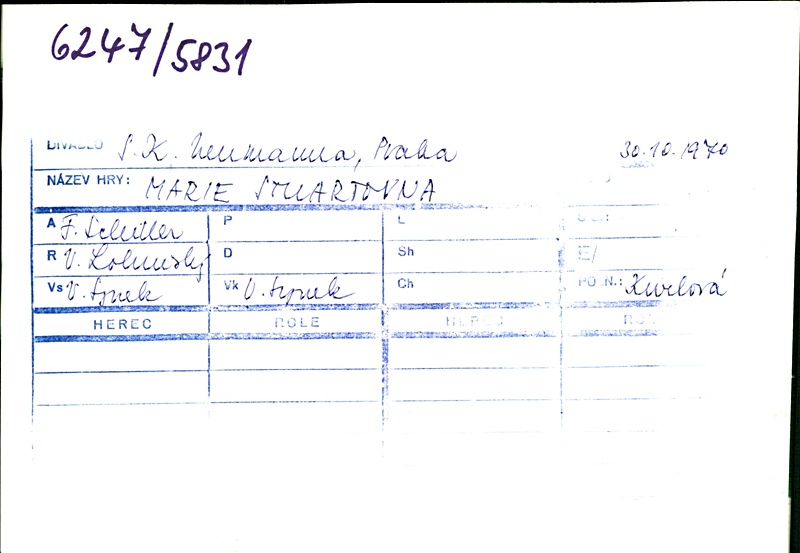 6247/5831
DIVADLO S. K. Neumanna, Praha 30.10.1970
NÁZEV HRY: MARIE STUARTOVNA
A F. Schiller P L
R V. Lohniský D Sh E/
Vs V. Synek Vk V. Synek Ch POŘ. N.: Kurelová
HEREC ROLE HEREC ROLE